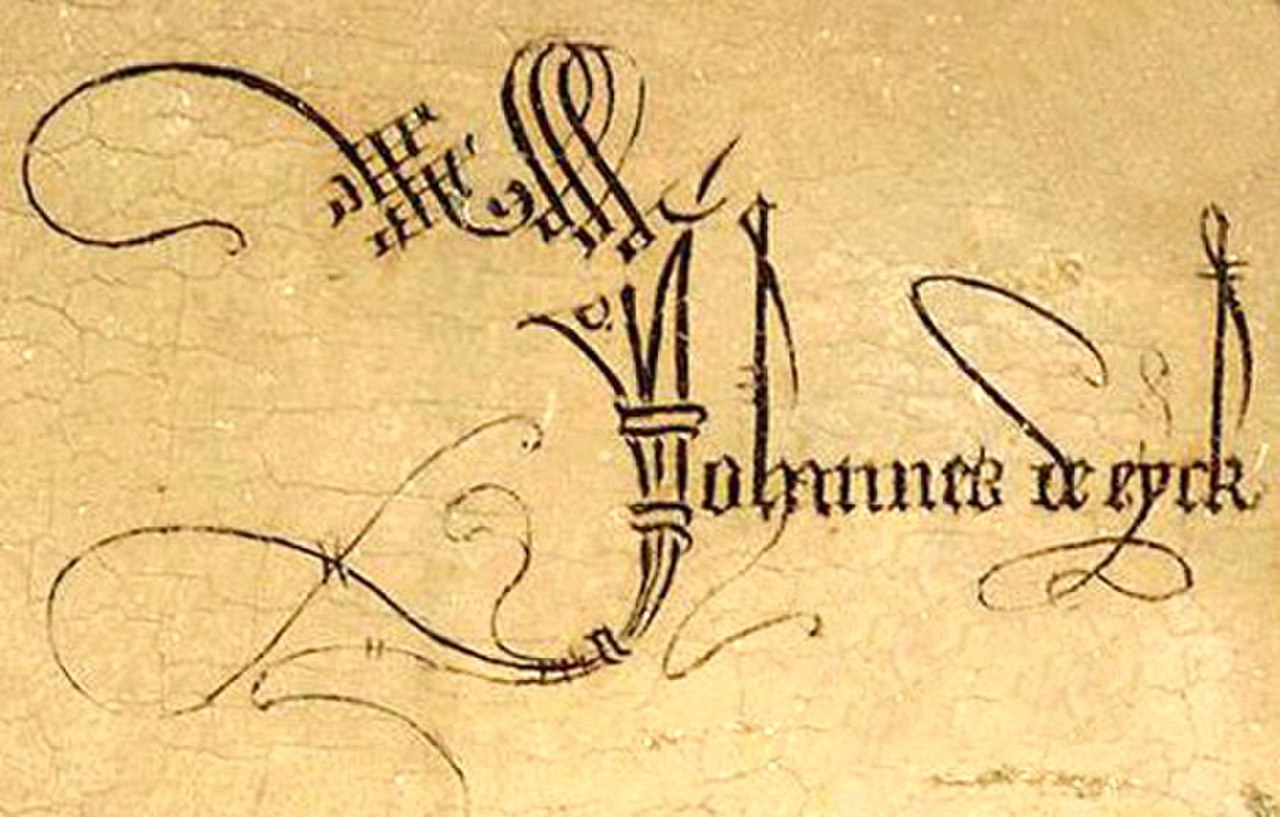 Johannes de eyck